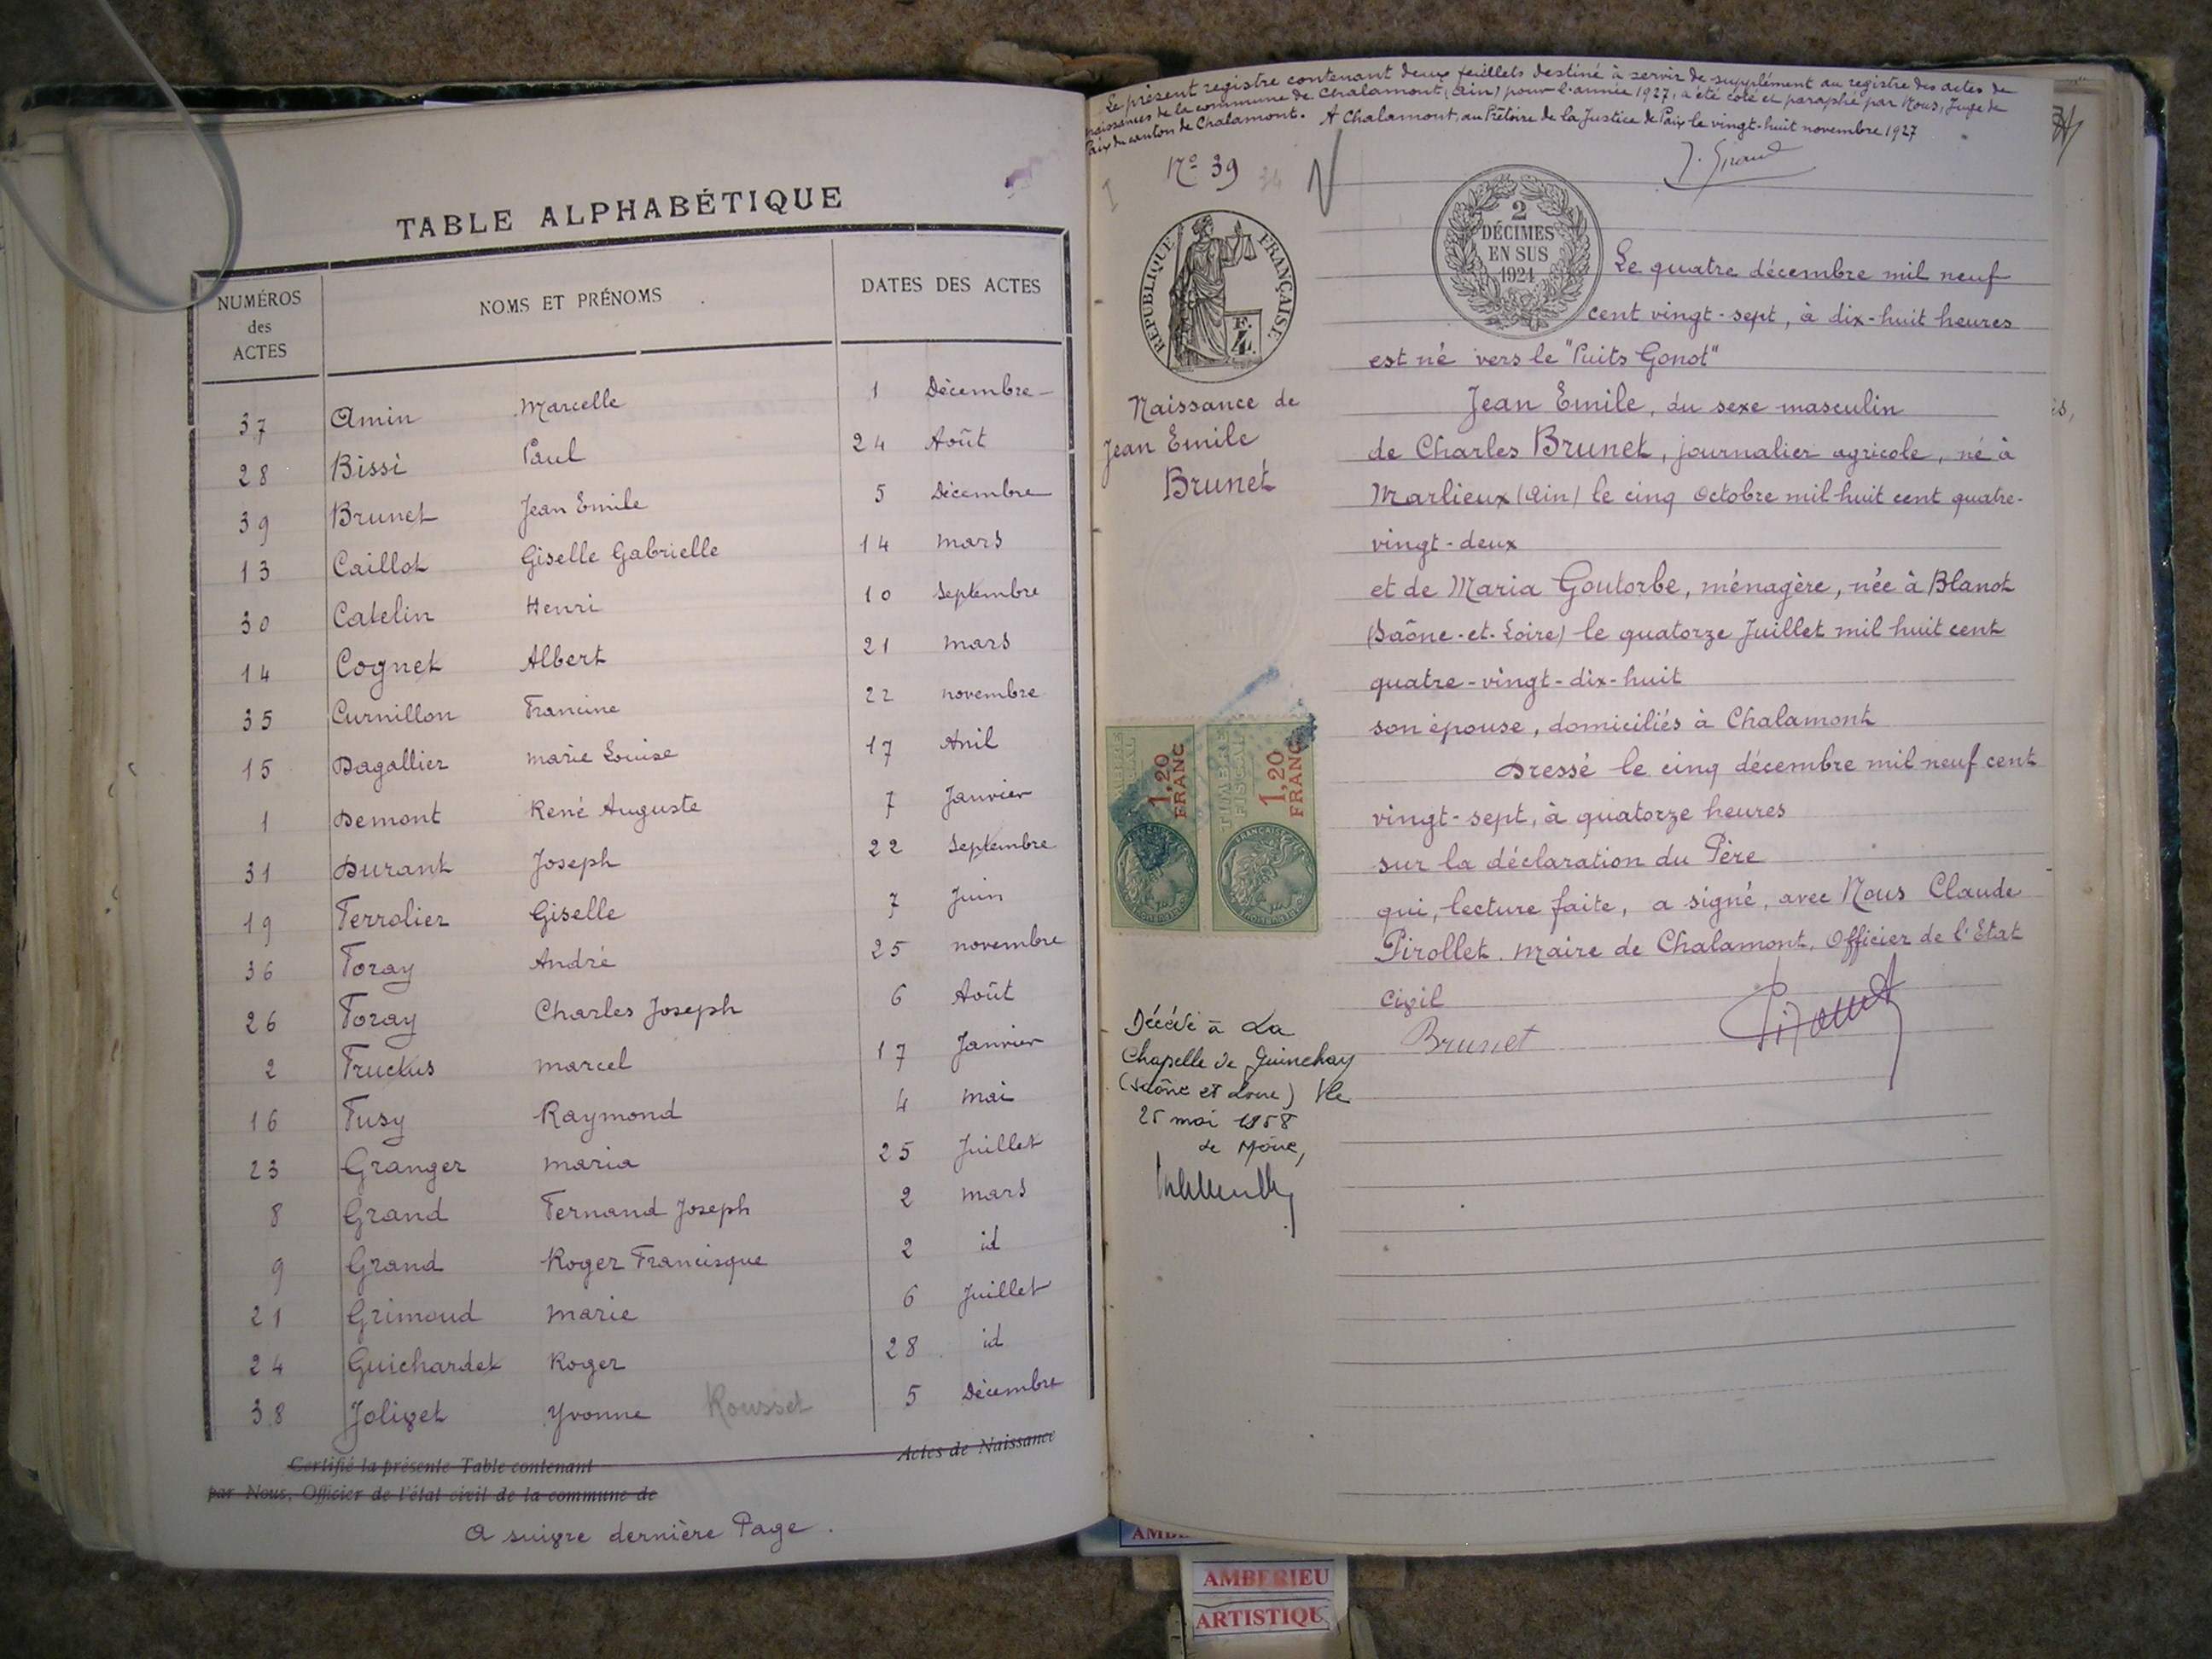 TABLE ALPHABÉTIQUE
NUMÉROS des ACTES NOMS ET PRÉNOMS DATES DES ACTES
37 Amin Marcelle 1 Décembre
28 Bissi Paul 24 Août
39 Brunet Jean Emile 5 Décembre
13 Caillot Giselle Gabrielle 14 mars
30 Catelin Henri 10 Septembre
14 Cognet Albert 21 mars
35 Curnillon Francine 22 novembre
15 Dagallier marie Louise 17 Avril
1 Demont René Auguste 7 Janvier
31 Durant Joseph 22 Septembre
19 Ferrolier Giselle 7 Juin
36 Foray André 25 novembre
26 Foray Charles Joseph 6 Août
2 Fruckus marcel 17 Janvier
16 Fusy Raymond 4 mai
23 Granger maria 25 Juillet
8 Grand Fernand Joseph 2 mars
9 Grand Roger Francisque 2 id
21 Grimoud marie 6 Juillet
24 Guichardet Roger 28 id
38 Jolivet Yvonne Rousset 5 Décembre
Certifié la présente Table contenant Actes de Naissance
par Nous, Officier de l'état civil de la commune de
A suivre dernière Page.
Le présent registre contenant deux feuillets destiné à servir de supplément au registre des actes de
naissances de la commune de Chalamont, (Ain) pour l'année 1927, a été coté et paraphé par Nous, Juge de
Paix du canton de Chalamont. A Chalamont, au Prétoire de la Justice de Paix le vingt-huit novembre 1927
No 39 34
RÉPUBLIQUE FRANÇAISE
2
DÉCIMES
EN SUS
1924
Naissance de
Jean Emile
Brunet
Le quatre décembre mil neuf
cent vingt-sept, à dix-huit heures
est né vers le "Puits Gonot"
Jean Emile, du sexe masculin
de Charles Brunet, journalier agricole, né à
Marlieux (Ain) le cinq Octobre mil huit cent quatre-
vingt-deux
et de Maria Goutorbe, ménagère, née à Blanot
(Saône-et-Loire) le quatorze Juillet mil huit cent
quatre-vingt-dix-huit
son épouse, domiciliés à Chalamont
Dressé le cinq décembre mil neuf cent
vingt-sept, à quatorze heures
sur la déclaration du Père
qui, lecture faite, a signé, avec Nous Claude
Pirollet. Maire de Chalamont. Officier de l'Etat
Civil
Brunet
TIMBRE
FISCAL
1,20
FRANC
1,20
FRANC
Décédé à La
Chapelle de Guinchay
(Saône et Loire) le
25 mai 1958
Le Maire,
AMBERIEU
ARTISTIQU